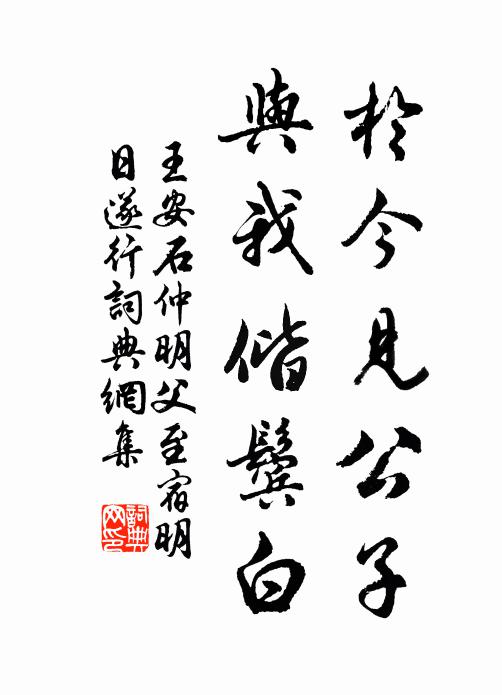 於今見公子
與我偕鬢白
王安石仲明父至宿明
日遂行詞典網集
詞典
网印